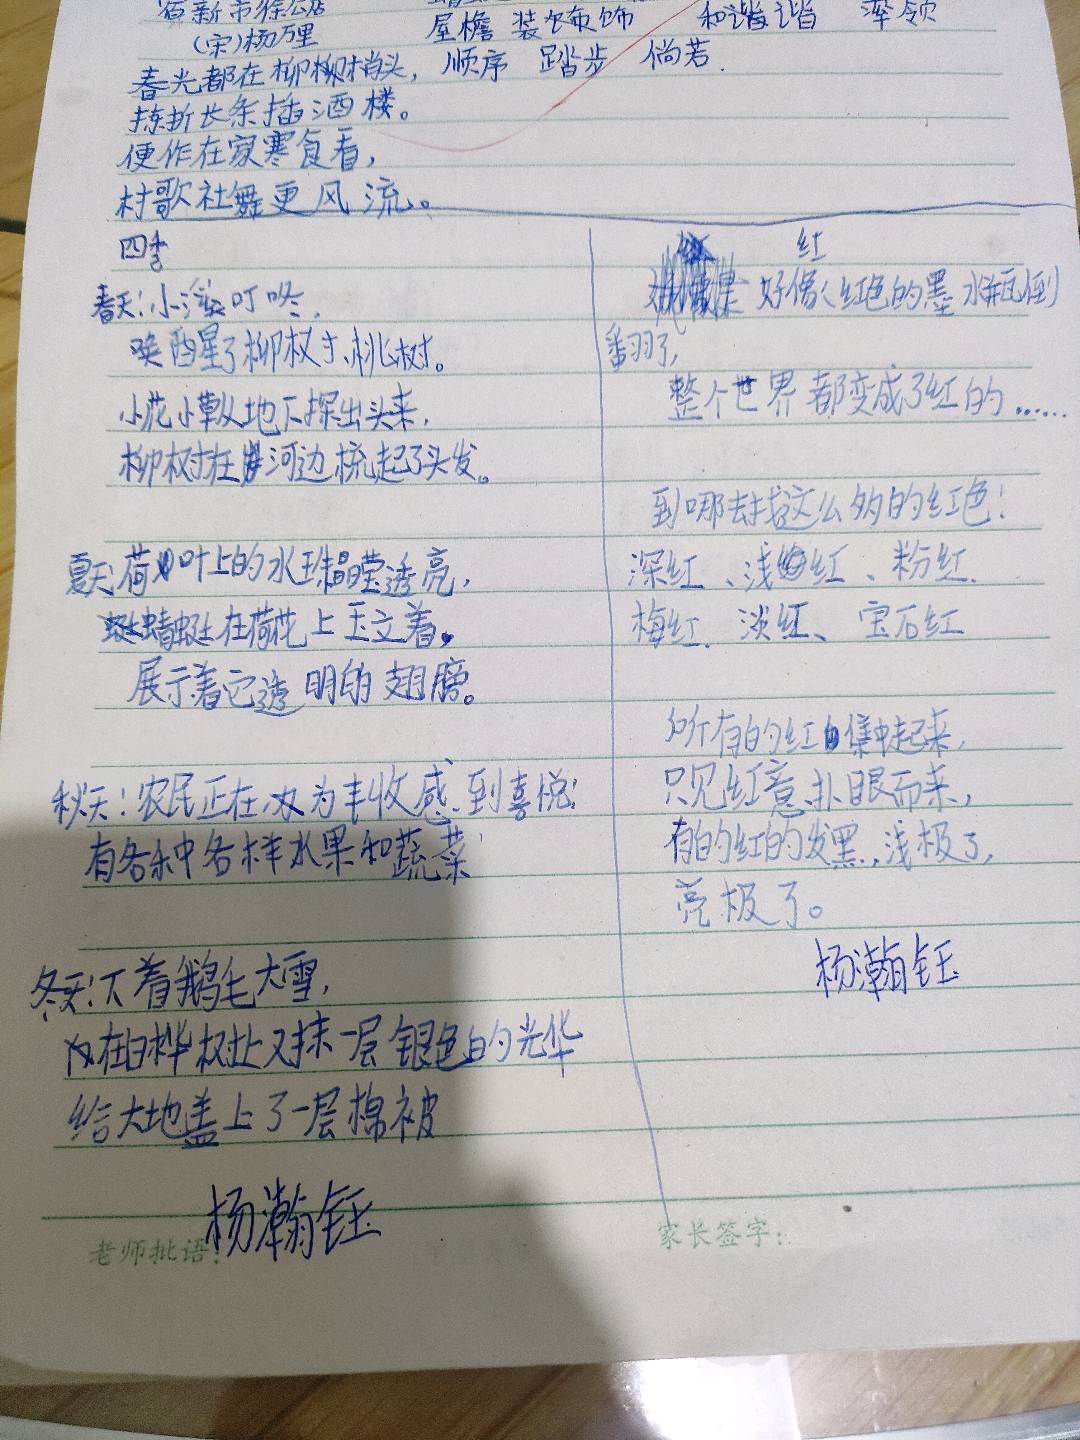 宿新市徐公店
(宋)杨万里
屋檐 装饰饰 和谐谐 率领
春光都在柳柳梢头, 顺序 踏步 倘若
拣折长条插酒楼。
便作在家寒食看,
村歌社舞更风流。
四季
春天:小溪叮咚,
唤醒了柳树、桃树。
小花小草从地下探出头来,
柳树在河边梳起了头发。
夏天:荷叶上的水珠晶莹透亮,
蜻蜓在荷花上立着。
展示着它透明的翅膀。
秋天:农民正在为丰收感到喜悦:
有各种各样水果和蔬菜
冬天:下着鹅毛大雪,
在白桦树上又抹一层银色的光华
给大地盖上了一层棉被
杨瀚钰
老师批语:
红
好像(红色的墨水瓶倒)
翻了,
整个世界都变成了红的......
到哪去找这么多的红色!
深红、浅红、粉红、
梅红、淡红、宝石红
所有的红集中起来,
只见红意扑眼而来,
有的红的发黑,浅极了,
亮极了。
杨瀚钰
家长签字: